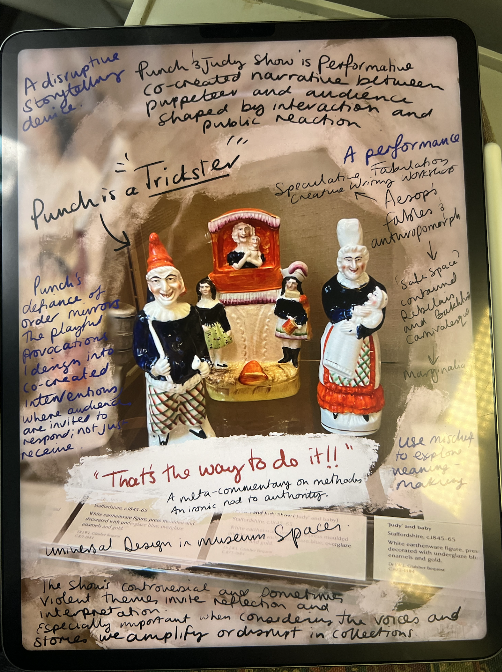 A disruptive
Storytelling
device.
Punch & Judy Show is Performative
co-created narrative between
puppeteer and audience
shaped by interaction and
public reaction
Punch is a Trickster
A performance
Speculative Fabulations
Creative Writing Workshop
Aesop's
fables &
anthropomorph
Safe Space?
contained
and
Carnivalesque
Marginalia
Punch's
defiance of
order mirrors
The playful
provocations
I design into
co-created
interventions
where audiences
are invited to
respond; not just
receive
use mischief
to explore
meaning
making
"That's the way to do it!!"
A meta-commentary on methods
An ironic nod to authority.
Staffordshire, c1845-65
White earthenware figure, press
decorated with
enamels and gold.
'Judy' and baby
Staffordshire, c1845-65
White earthenware figure, press
decorated with underglaze blue
enamels and gold.
Universal Design in museum Spaces.
The Show's controversial and sometimes
violent themes invite reflection and
interpretation
Especially important when considering the voices and
stories we amplify or disrupt in collections